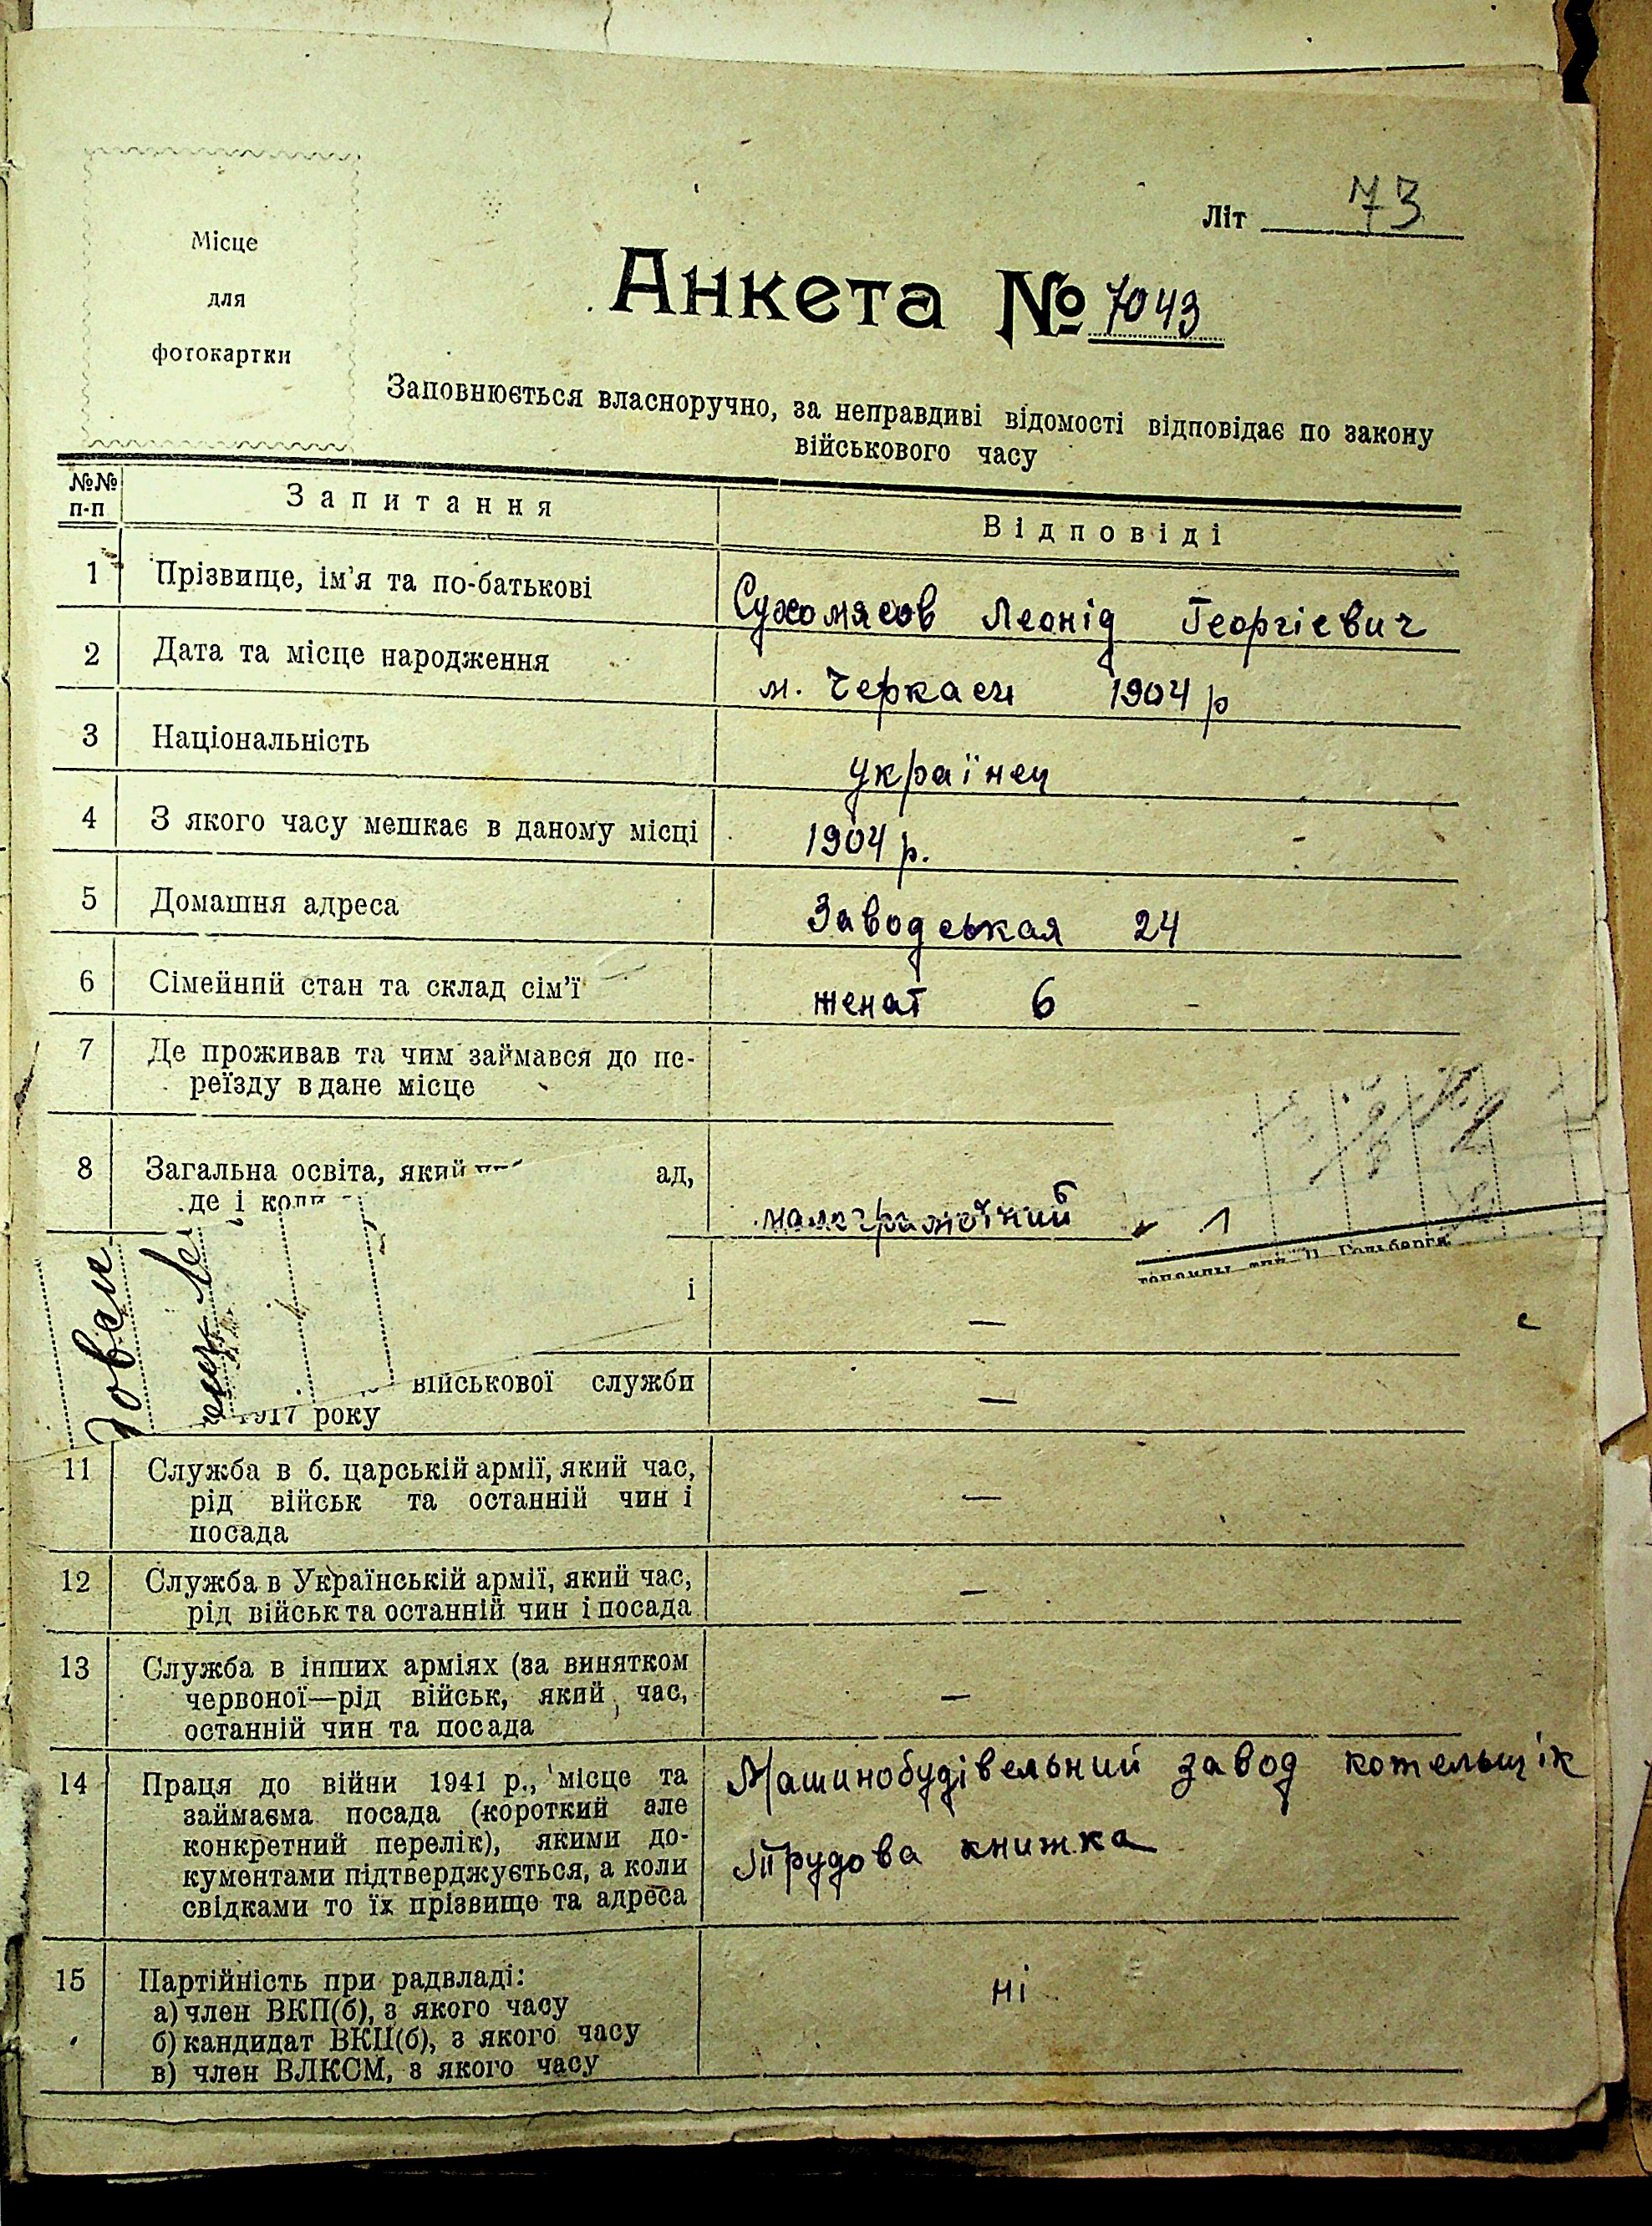 Місце
для
фотокартки
Літ 73
Анкета № 7043
Заповнюється власноручно, за неправдиві відомості відповідає по закону
військового часу
№№
п-п
Запитання
Відповіді
1 Прізвище, ім'я та по-батькові
Сухомясов Леонід Георгієвич
2 Дата та місце народження
м. Черкаси 1904 р
3 Національність
українец
4 З якого часу мешкає в даному місці
1904 р.
5 Домашня адреса
Заводськая 24
6 Сімейний стан та склад сім'ї
женат 6
7 Де проживав та чим займався до пе-
реїзду в дане місце
8 Загальна освіта, який ад,
де і коли
малограмотний
1
Гольберга
і
—
військової служби
1917 року
—
11 Служба в б. царській армії, який час,
рід військ та останній чин і
посада
—
12 Служба в Українській армії, який час,
рід військ та останній чин і посада
—
13 Служба в інших арміях (за винятком
червоної—рід військ, який час,
останній чин та посада
—
14 Праця до війни 1941 р., місце та
займаєма посада (короткий але
конкретний перелік), якими до-
кументами підтверджується, а коли
свідками то їх прізвище та адреса
Машинобудівельний завод котельщік
Трудова книжка
15 Партійність при радвладі:
а) член ВКП(б), з якого часу
б) кандидат ВКП(б), з якого часу
в) член ВЛКСМ, з якого часу
ні